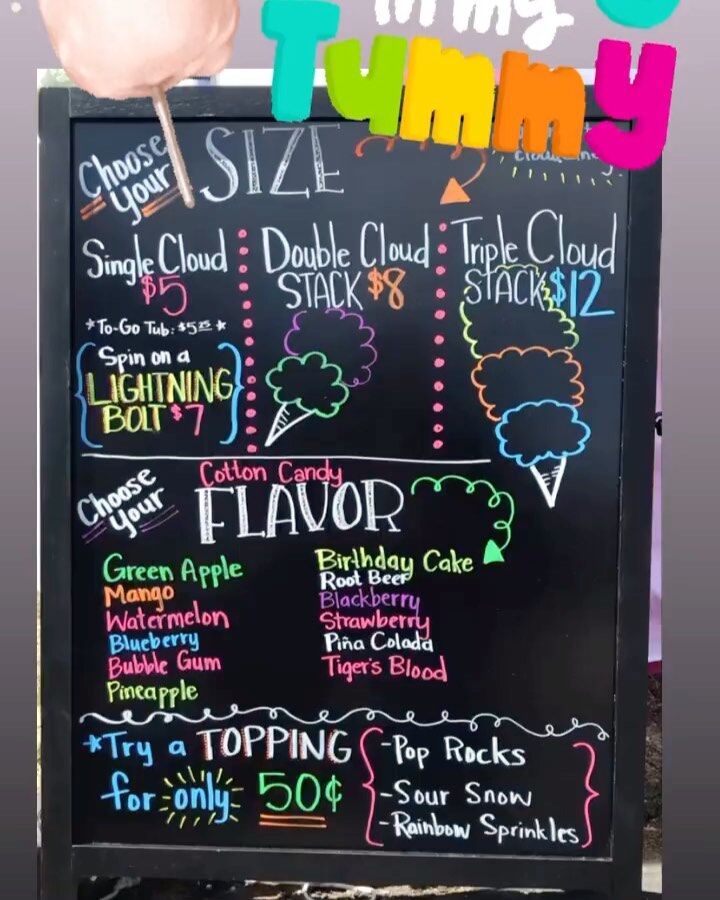 in my
Tummy
Choose
Your
SIZE
Single Cloud
$5
*To-Go Tub: $5.25*
Spin on a
LIGHTNING
BOLT $7
Double Cloud
STACK $8
Triple Cloud
STACK $12
Choose
Your
Cotton Candy
FLAVOR
Green Apple
Mango
Watermelon
Blueberry
Bubble Gum
Pineapple
Birthday Cake
Root Beer
Blackberry
Strawberry
Piña Colada
Tiger's Blood
*Try a TOPPING
for only 50¢
-Pop Rocks
-Sour Snow
-Rainbow Sprinkles